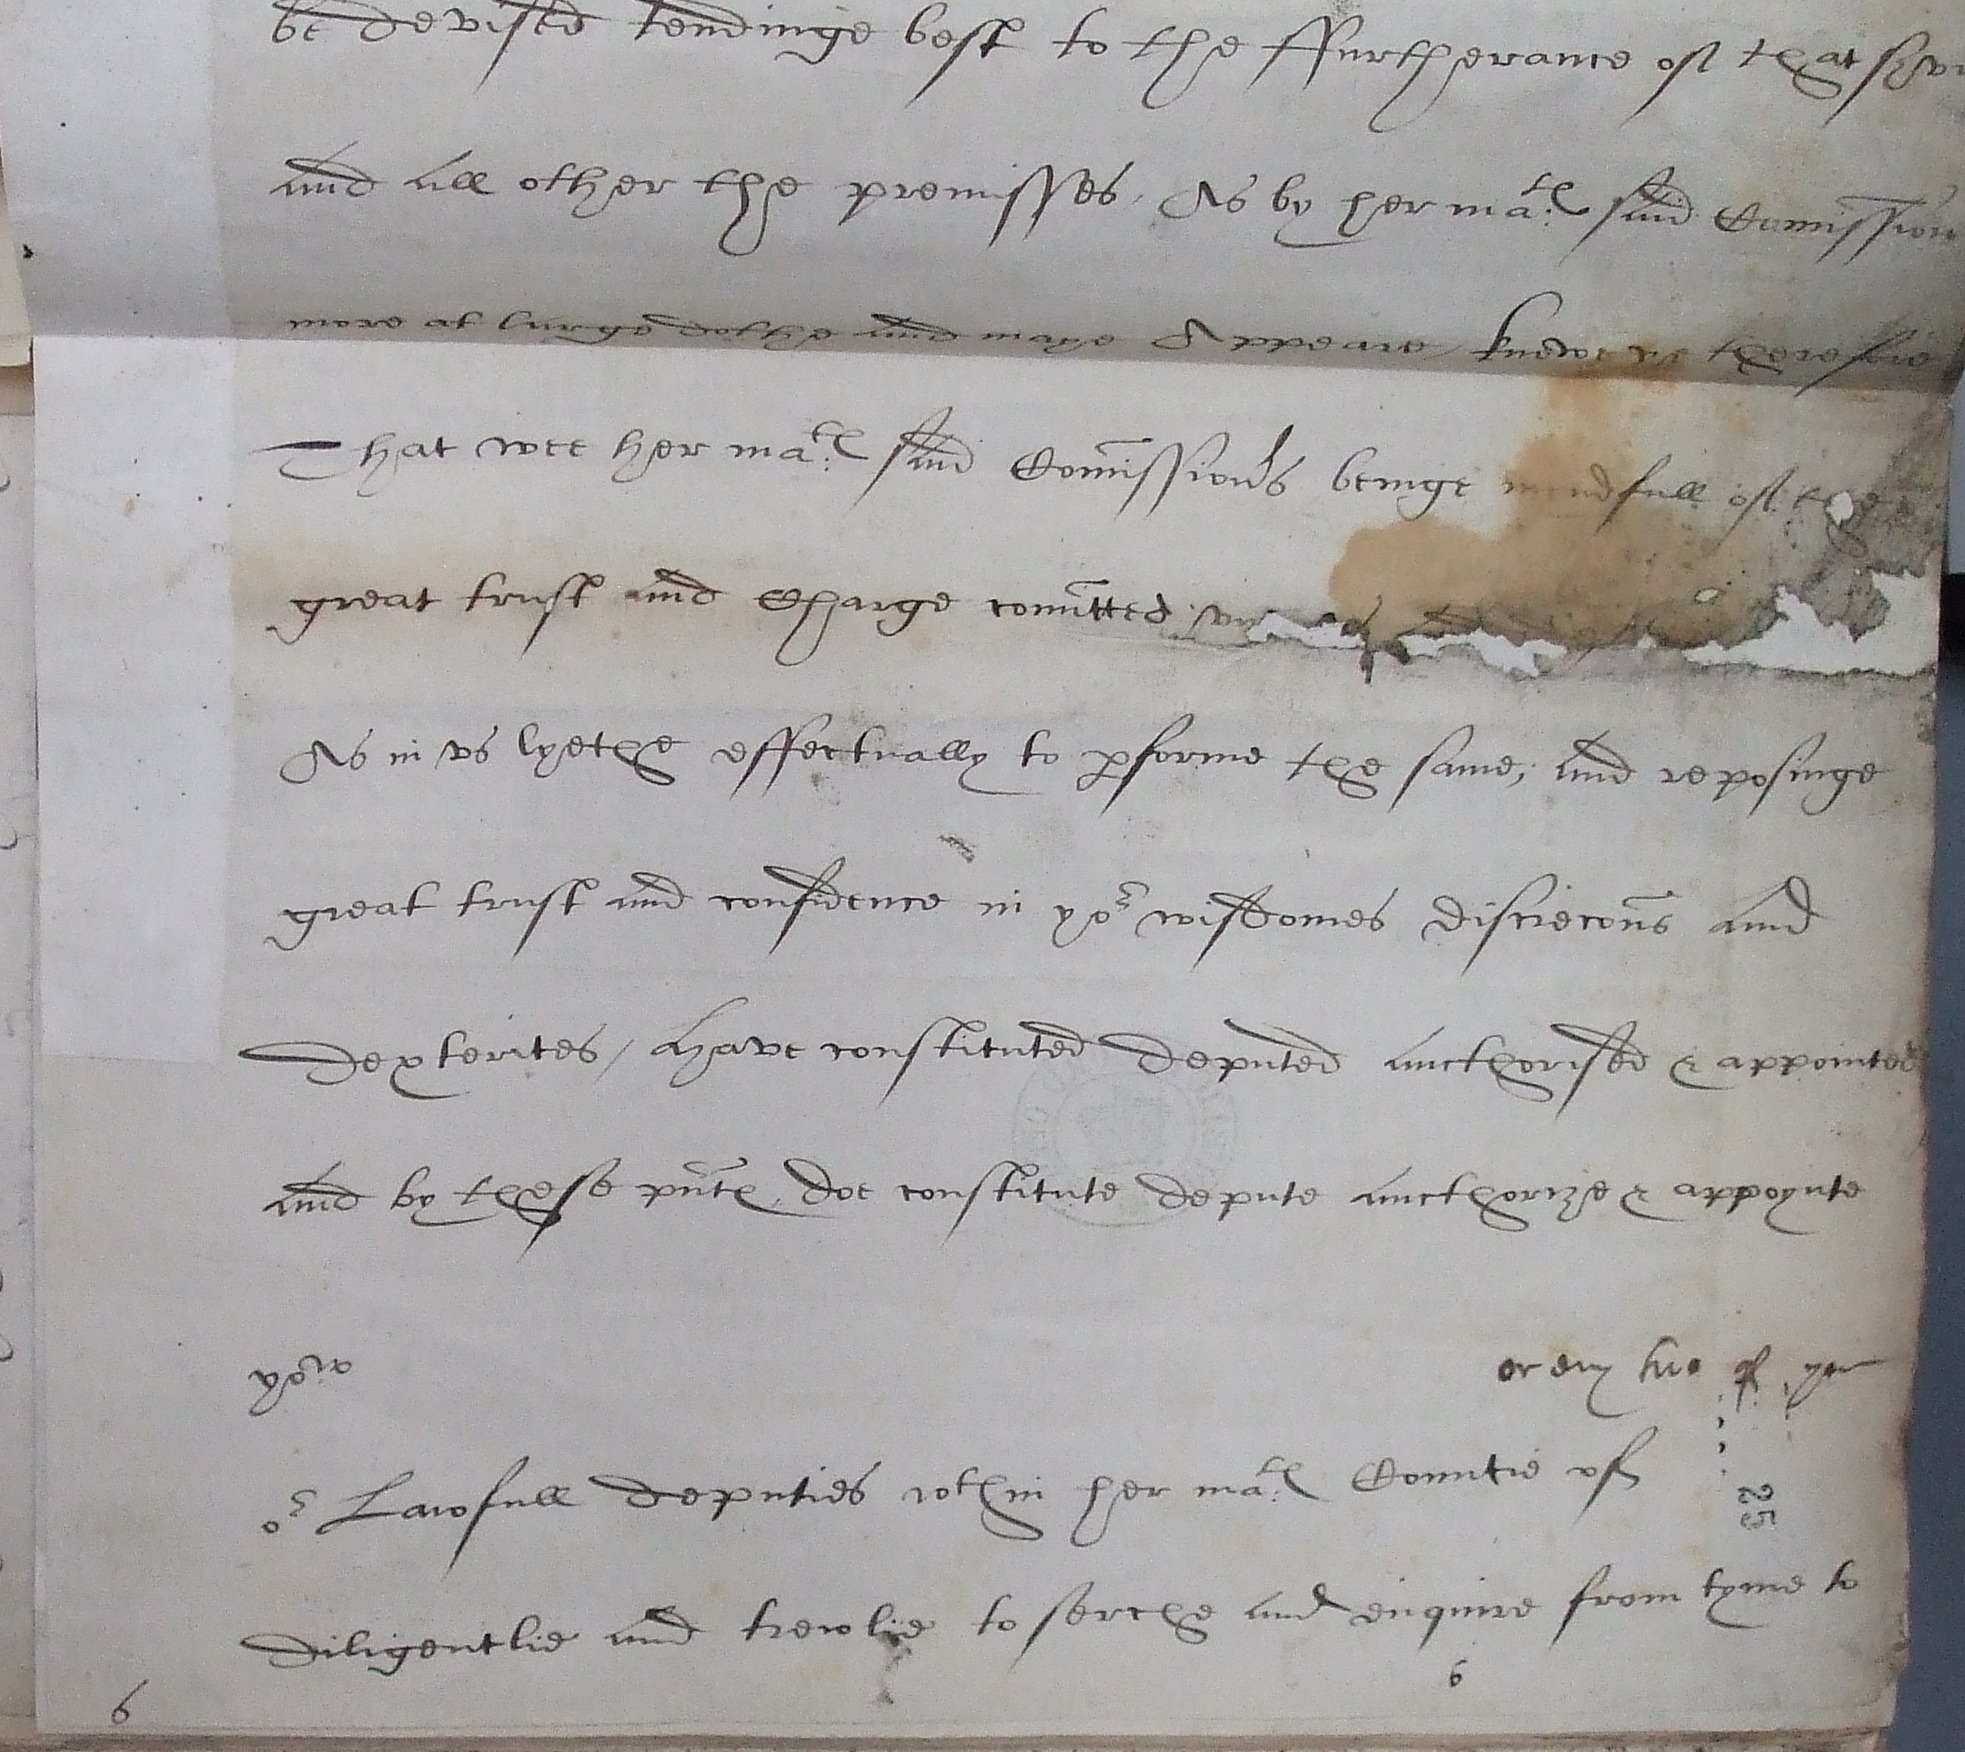 be devised tendinge best to the ffurtherance of that
and all other the premisses, As by her ma:tes said Comission
more at large dothe and maye Appeare, knowe ye therefore
That wee her ma:tes said Comissioners beinge mindfull of the
great trust and Charge comitted
As in us lyethe effectually to pforme the same, and reposinge
great trust and confidence in yor wisdomes discrecons and
dexterites / have constituted deputed aucthorised & appointed
and by these pntes doe constitute depute aucthorize & appoynte
yow or eny two of yow
or Lawfull deputies wthin her ma:tes Countie of
diligentlie and trewlie to serche and enquire from tyme to
6 6